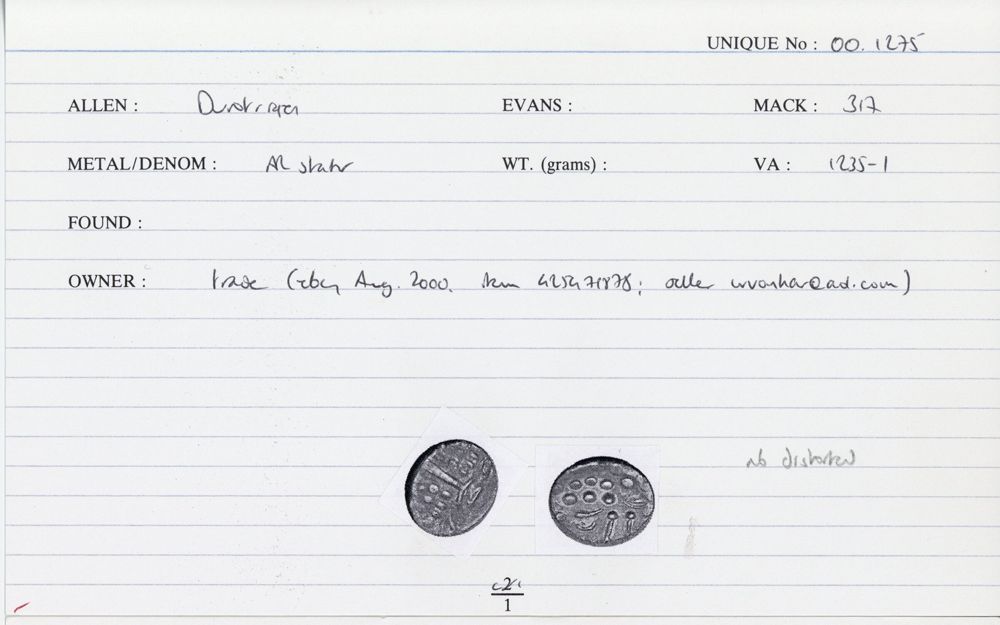 UNIQUE No : 00. 1275
ALLEN : Durotrigan EVANS : MACK : 317
METAL/DENOM : AR stater WT. (grams) : VA : 1235-1
FOUND :
OWNER : trade (ebay Aug. 2000. item 425471878; seller
nb distorted
c2:
1